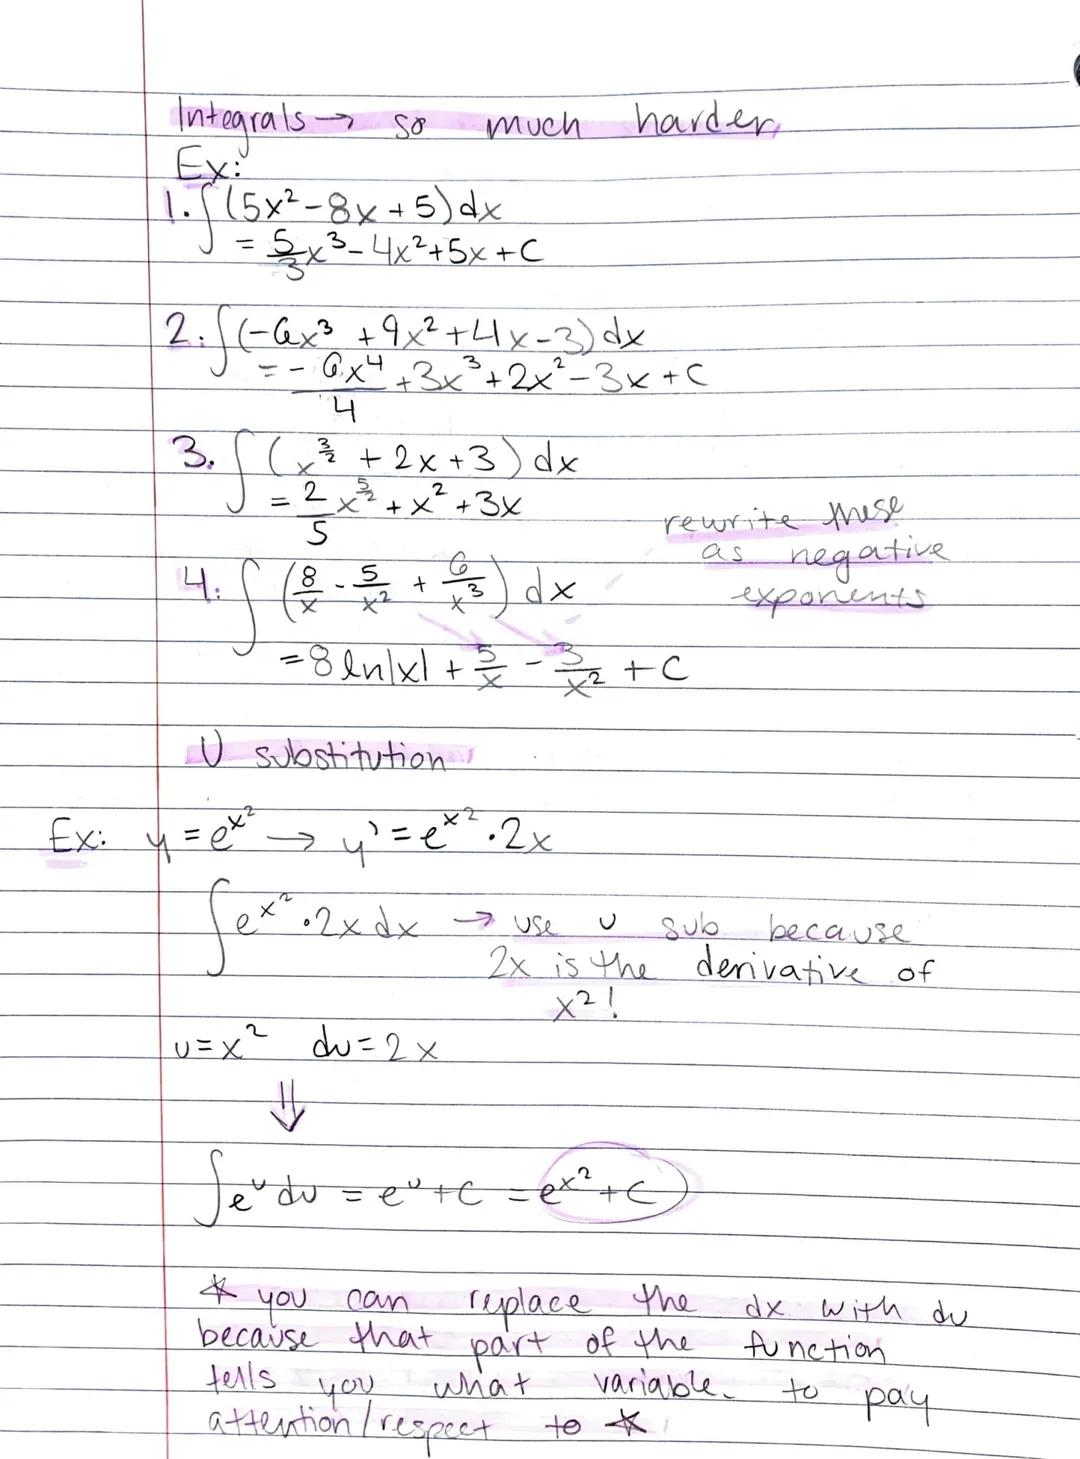 Integrals → so much harder
Ex:
1. ∫(5x²-8x+5)dx
= 5/3 x³-4x²+5x+C
2. ∫(-6x³+9x²+4x-3)dx
= - 6x⁴/4 +3x³+2x²-3x+C
3. ∫(x^(3/2) + 2x+3)dx
= 2/5 x^(5/2) + x² + 3x
rewrite these
as negative
exponents
4. ∫(8/x - 5/x² + 6/x³) dx
= 8 ln|x| + 5/x - 3/x² + C
U substitution
Ex: y = e^(x²) → y' = e^(x²)·2x
∫e^(x²)·2x dx → use u sub because
2x is the derivative of
x²!
u=x² du=2x
⇓
∫e^u du = e^u+C = e^(x²)+C
* you can replace the dx with du
because that part of the function
tells you what variable to pay
attention/respect to *